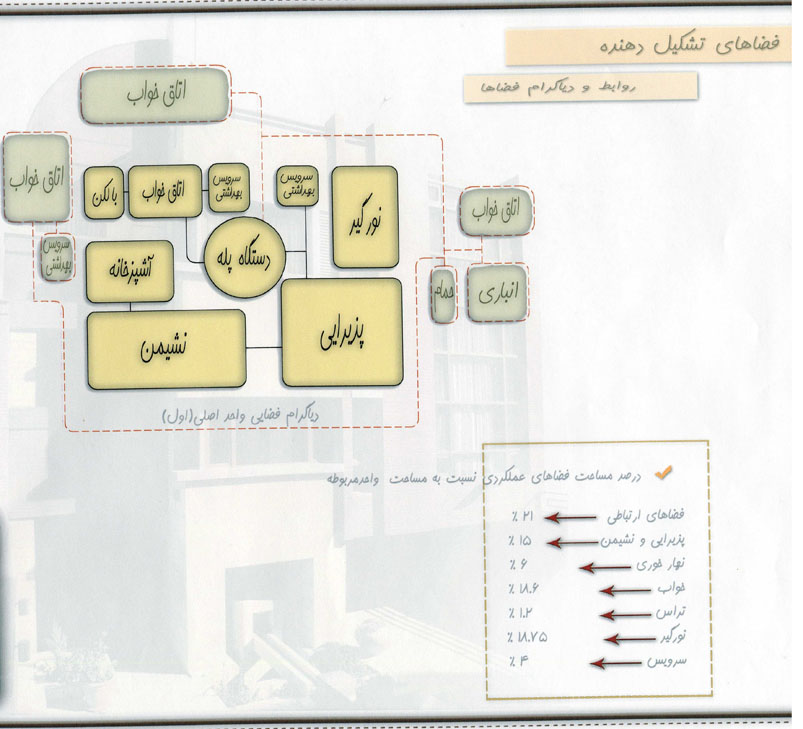 فضاهای تشکیل دهنده
روابط و دیاگرام فضاها
اتاق خواب
اتاق خواب
سرویس بهداشتی
بالکن
اتاق خواب
سرویس بهداشتی
سرویس بهداشتی
نورگیر
آشپزخانه
دستگاه پله
نشیمن
پذیرایی
اتاق خواب
حمام
انباری
دیاگرام فضایی واحد اصلی(اول)
درصد مساحت فضاهای عملکردی نسبت به مساحت واحدمربوطه
فضاهای ارتباطی ۲۱ ٪
پذیرایی و نشیمن ۱۵ ٪
نهار خوری ۶ ٪
خواب ۱۸.۶ ٪
تراس ۱.۲ ٪
نورگیر ۱۸.۷۵ ٪
سرویس ۴ ٪